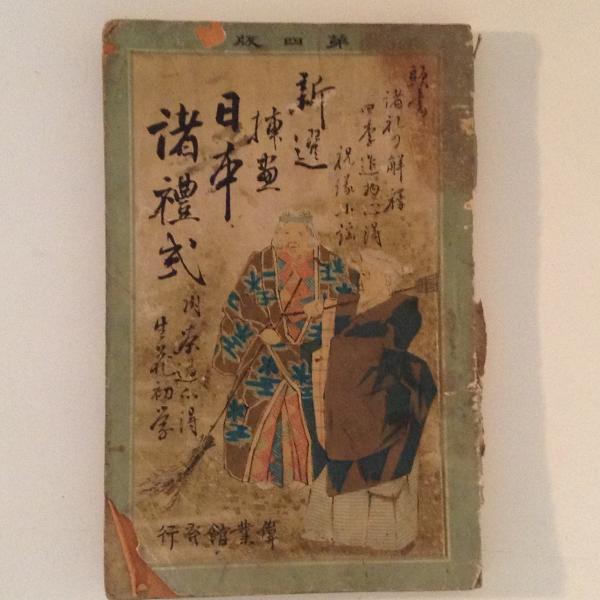 第四版
頭書
諸礼の解釋
四季進物心得
祝儀小謡
新選
挿畫
日本
諸禮式
附茶道心得
生花初学
偉業館發行